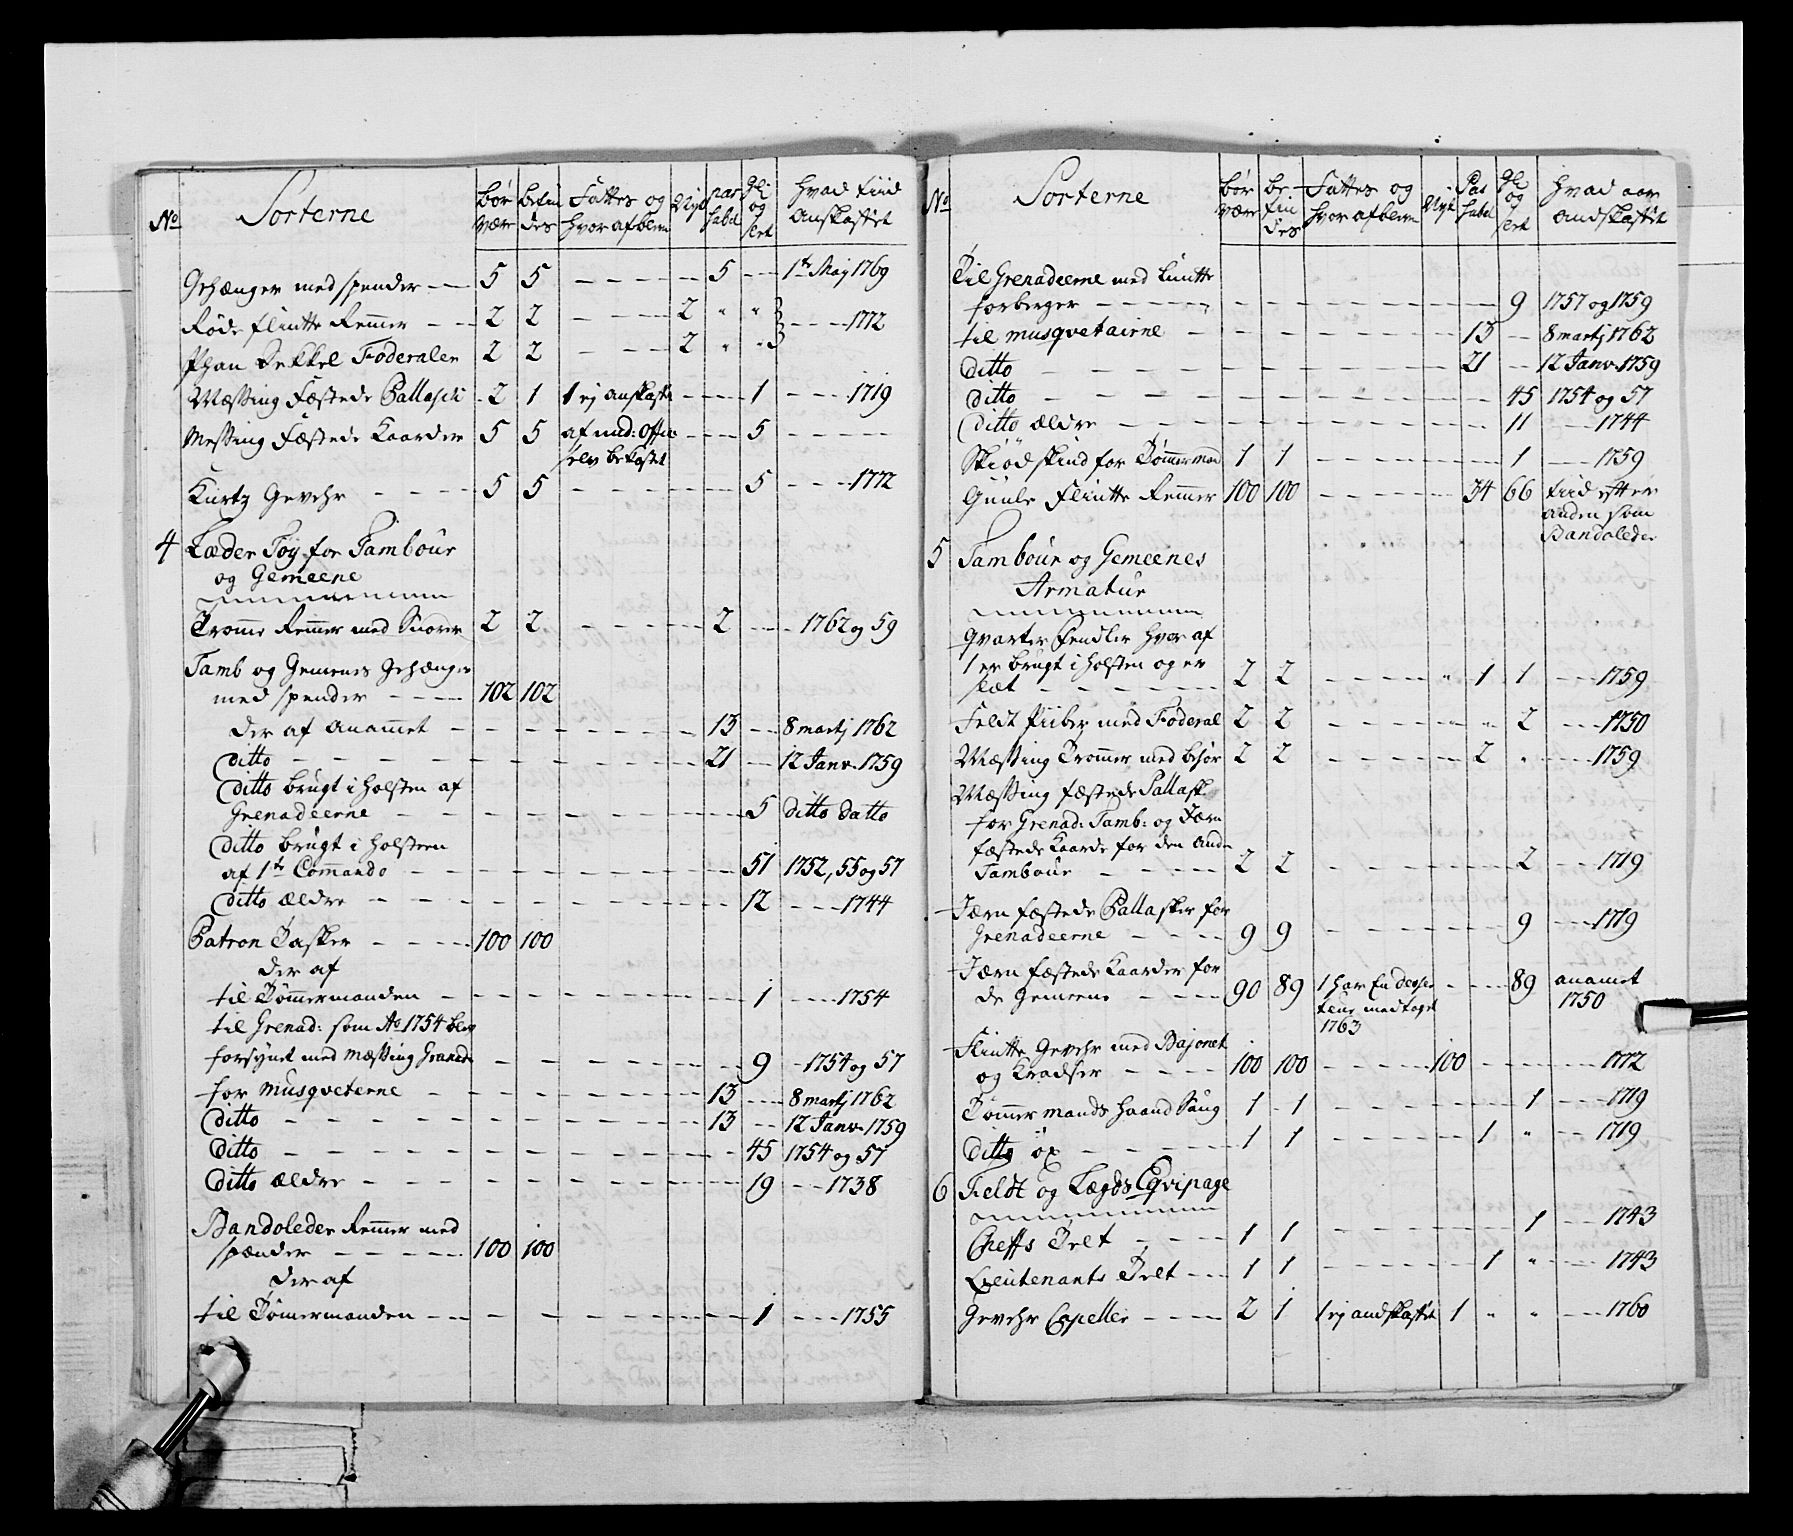 No Sorterne bör være befin des Fattes og hvor afblevn Nye pas sabel Gl: og slet Hvad tiid anskaffet
Gehænger med spender 5 5 5 1te Maj 1769
Røde flintte Remmer 2 2 2 " "
Phan Dekkel Foderaler 2 2 2 " " 1772
Mæssing Fæstede Pallasch 2 1 1 ej anskaffe 1 1719
Messing Fæstede Kaarder 5 5 af und: Offic 5
selv bekostet
Kurtz Gevehr 5 5 5 1772
4 Læder Töy for Tambour
og Gemeene
Tromme Remer med Snorer 2 2 2 1762 og 59
Tamb og Gemenes Gehænger
med spender 102 102
der af anammet 13 8 martj 1762
ditto 21 12 Janv. 1759
ditto brugt i Holsten af
Grenadeerne 5 ditto datto
ditto brugt i Holsteen
af 1te Commando 51 1752, 55 og 57
ditto ældre 12 1744
Patron Tasker 100 100
der af
til Tömmermanden 1 1754
til Grenad: som Ao 1754 blev
forsynet med Mæssing Granad 9 1754 og 57
for Musqveterne 13 8 martj 1762
ditto 13 12 Janv. 1759
ditto 45 1754 og 57
ditto ældre 19 1738
Bandoleder Remmer med
spænder 100 100
der af
til Tömermanden 1 1755
No Sorterne bör være be fin des Fattes og hvor afblevn Nyt Pas sabel Gl: og slet Hvad aar andskaffet
Til Grenadeerne med Luntte
forberger 9 1757 og 1759
til Musqvetairne 13 8 martj 1762
ditto 21 12 Janv. 1759
ditto 45 1754 og 57
ditto ældre 11 1744
Skiödskind for Tömmermand 1 1 1 1759
Guule Flintte Remmer 100 100 34 66 tiid efter
anden som
Bandoleder
5 Tambour og Gemeenes
Armatur
Qvarter Fendler hvor af
1 er brugt i Holsten og er
slæt 2 2 " 1 1 1759
Feldt Piiber med Foderal 2 2 " 2 1750
Mæssing Trommer med behör 2 2 2 " 1759
Mæssing fæstede Pallask
for Grenad: Tamb: og Jærn
fæstede Kaarde for den Anden
Tambour 2 2 2 1719
Jærn fæstede Pallasker for
Grenadeerne 9 9 9 1719
Jærn fæstede Kaarder for
de Gemeene 90 89 1 har En deser 89 anamet
teur medtaget 1750
1763
Flintte Gevehr med Bajonet
og Kradser 100 100 100 1772
Tömmermands haand Saug 1 1 1 1719
Ditto öx 1 1 1 " 1719
6 Feldt og Lægds Eqvipage
Cheffs Telt 1 1 1 1743
Lieutenants Telt 1 1 1 " 1743
Gevehr Capeller 2 1 1 ej andskaffet 1 " " 1760